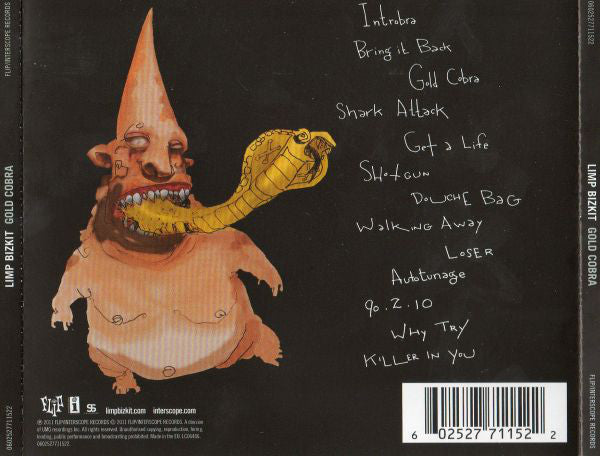 Introbra
Bring it Back
Gold Cobra
Shark Attack
Get a Life
Shotgun
DOUCHE BAG
WALKiNG AWAY
LOSER
Autotunage
90.2.10
WHY TRY
KiLLER iN YOU
FLIP/INTERSCOPE RECORDS
LIMP BIZKIT GOLD COBRA
0602527711522
0602527711522
LIMP BIZKIT GOLD COBRA
FLIP/INTERSCOPE RECORDS
FLIP
limpbizkit.com
interscope.com
℗ 2011 FLIP/INTERSCOPE RECORDS © 2011 FLIP/INTERSCOPE RECORDS. A division
of UMG recordings Inc. All rights reserved. Unauthorised copying, reproduction, hiring,
lending, public performance and broadcasting prohibited. Made in the EU. LC06406.
0602527711522.
6 02527 71152 2